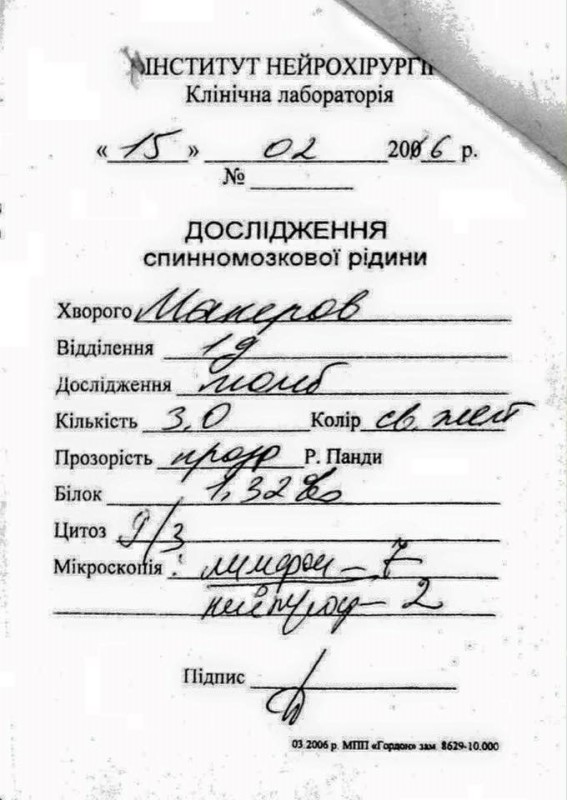 ІНСТИТУТ НЕЙРОХІРУРГІЇ
Клінічна лабораторія
« 15 » 02 2016 р.
№
ДОСЛІДЖЕННЯ
спинномозкової рідини
Хворого Манеров
Відділення
Дослідження
Кількість 3,0 Колір св. желт
Прозорість прозр Р. Панди
Білок 1,32
Цитоз 9/3
Мікроскопія : лимфоц – 7
нейтроф – 2
Підпис
03.2006 р. МПП «Гордон» зам. 8629-10.000